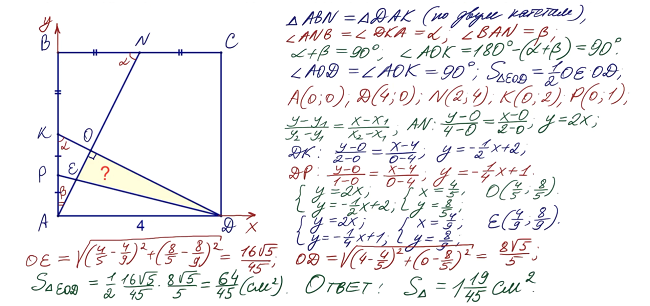 y
B
N
C
α
K
α
O
P
E
?
β
A
4
D
x
△ABN = △DAK (по двум катетам),
∠ANB = ∠DKA = α, ∠BAN = β;
α+β = 90°, ∠AOK = 180°-(α+β) = 90°.
∠AOD = ∠AOK = 90°; S△EOD = 1/2 OE·OD,
A(0;0), D(4;0); N(2;4), K(0;2), P(0;1),
y-y₁/y₂-y₁ = x-x₁/x₂-x₁, AN: y-0/4-0 = x-0/2-0; y=2x;
DK: y-0/2-0 = x-4/0-4, y=-1/2x+2,
DP: y-0/1-0 = x-4/0-4, y=-1/4x+1.
{y=2x, y=-1/2x+2; {x=4/5, y=8/5; O(4/5; 8/5).
{y=2x; y=-1/4x+1, {x=4/9, y=8/9, E(4/9; 8/9).
OE = √(4/5-4/9)²+(8/5-8/9)² = 16√5/45, OD = √(4-4/5)²+(0-8/5)² = 8√5/5;
S△EOD = 1/2·16√5/45·8√5/5 = 64/45 (см²). Ответ: S△ = 1 19/45 см².